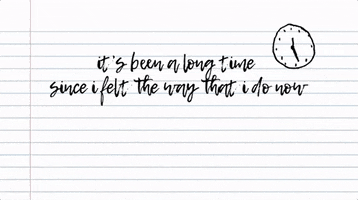 it's been a long time
since i felt the way that i do now